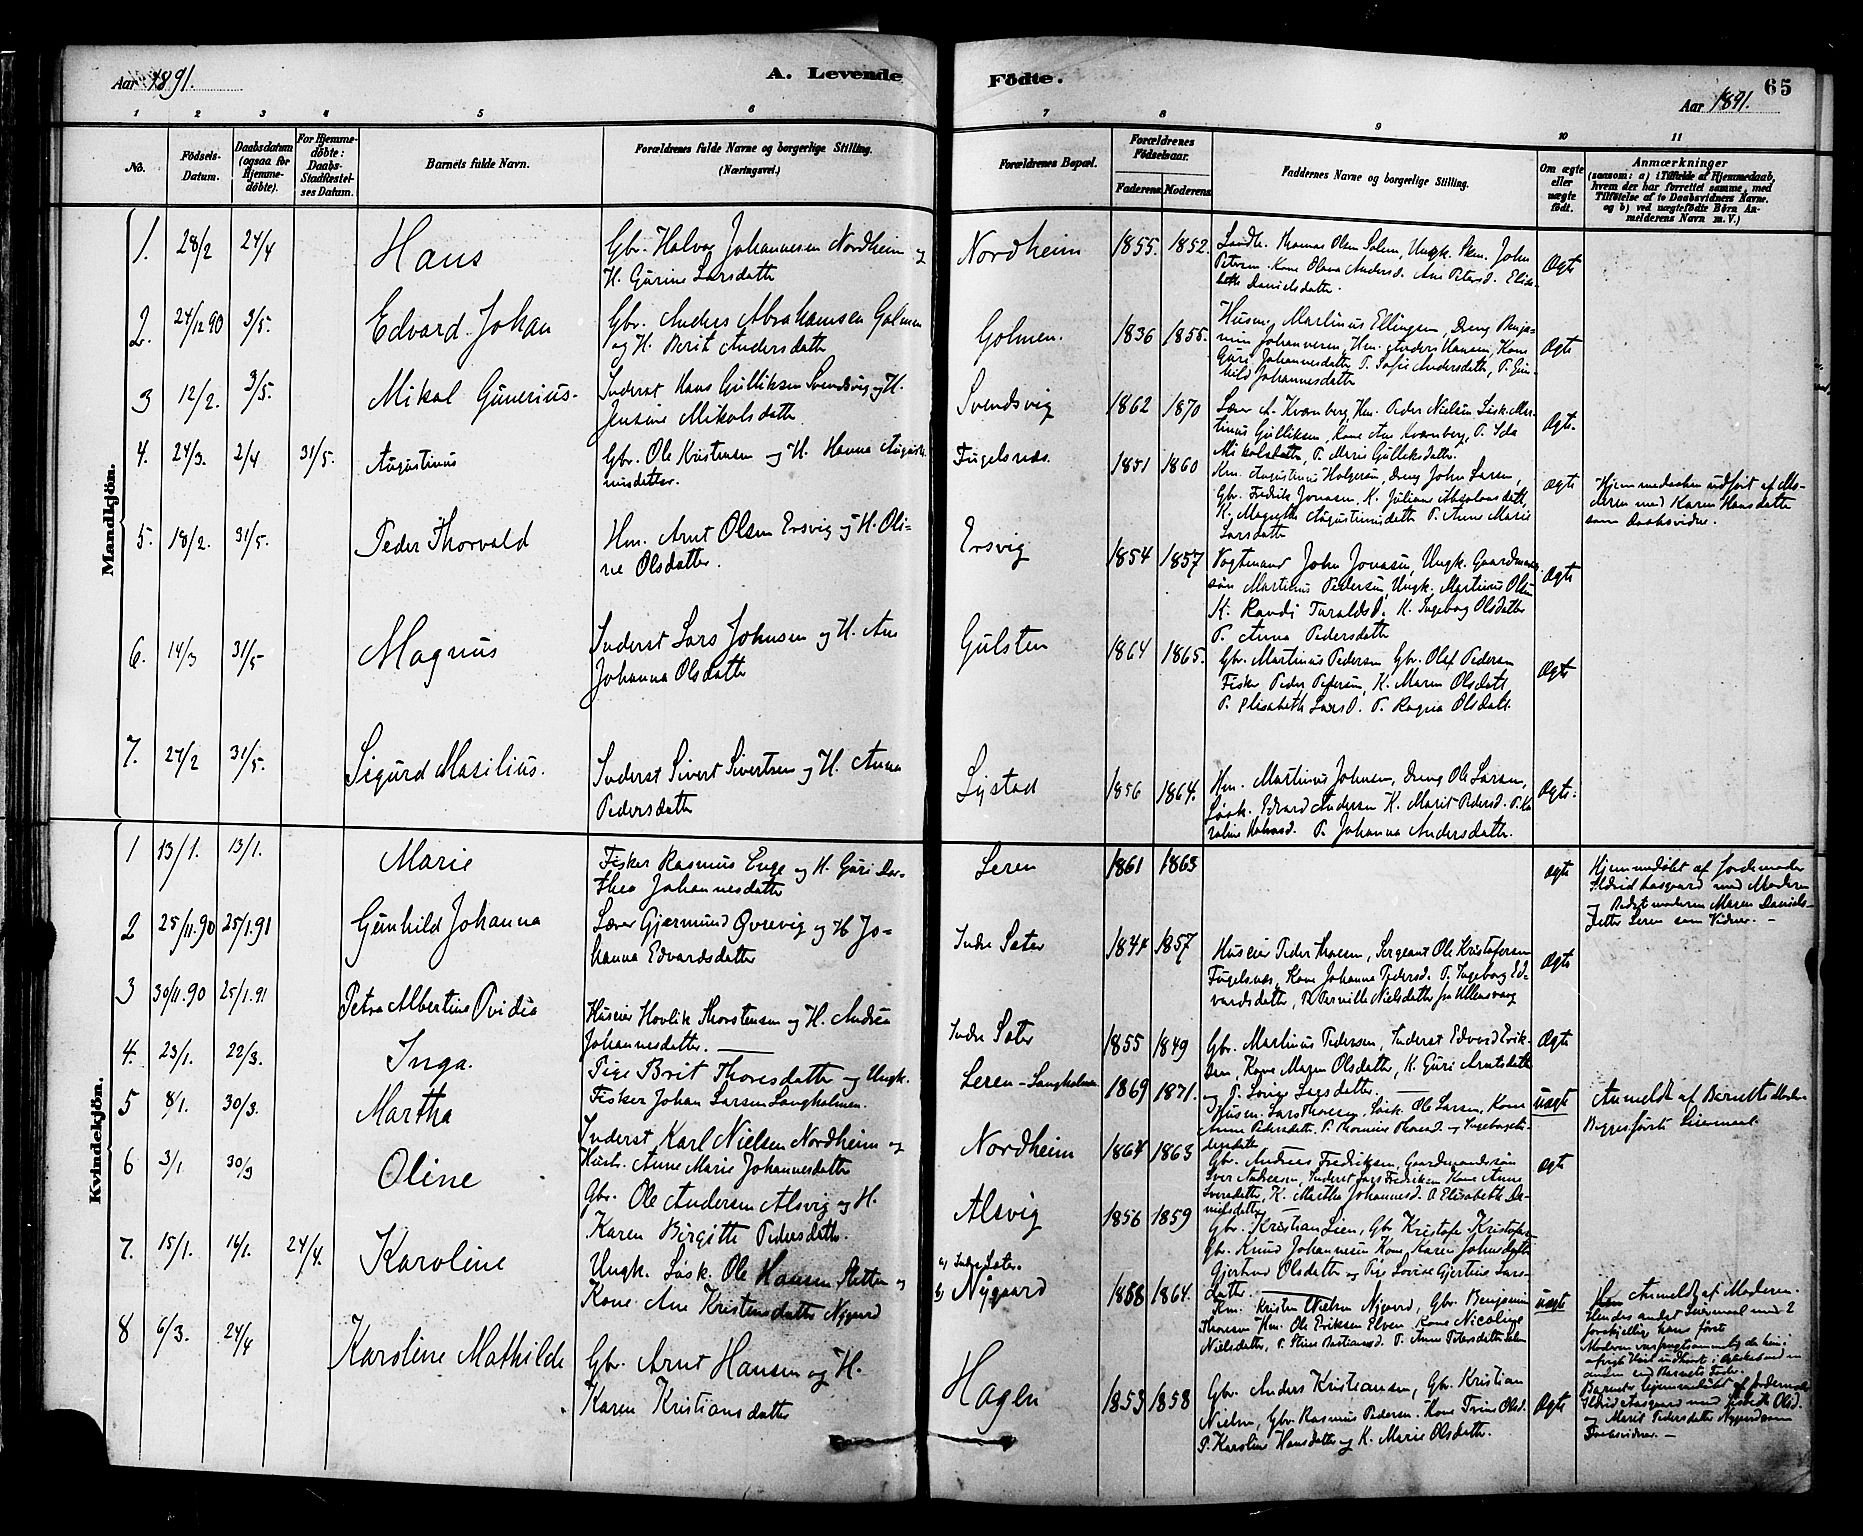 Aar 1891.
A. Levende
Födte.
65
Aar 1891.
1 2 3 4 5 6 7 8 9 10 11
No.
Födsels-
Datum.
Daabsdatum
(ogsaa for
Hjemme-
döbte).
For Hjemme-
döbte:
Daabs-
Stadfæstel-
ses Datum.
Barnets fulde Navn.
Forældrenes fulde Navne og borgerlige Stilling.
(Næringsvei.)
Forældrenes Bopæl.
Forældrenes
Födselsaar.
Faderens. Moderens.
Faddernes Navne og borgerlige Stilling.
Om ægte
eller
uægte
födt.
Anmærkninger
(saasom: a) i Tilfælde af Hjemmedaab,
hvem der har forrettet samme, med
Tilföielse af to Daabsvidners Navne.
og b) ved uægtefödte Börn An-
melderens Navn m. V.)
Mandkjön.
1. 28/2 24/4 Hans
Gbr. Halvor Johannesen Nordheim og
H. Gurine Larsdatter
Nordheim 1855. 1852.
Thomas Olsen Solem, Ungk. John
Petersen. Kone Olava Andersd. Ane Petersd. Elisa-
beth Danielsdatter.
Ægte
2. 24/12 90 3/5. Edvard Johan
Gbr. Anders Abrahamsen Golmen
og H. Berit Andersdatter
Golmen. 1836 1855.
Husm. Martinus Ellingsen, Dreng Benja-
min Johannesen, Hm. Anders Hansen, Kone
Guri Johannesdatter, P. Sofie Andersdatter, P. Gun-
hild Johannesdatter
Ægte
3 12/2. 3/5. Mikal Gunerius.
Inderst Hans Gulliksen Svendsvig og H.
Jensine Mikalsdatter
Svendsvig 1862 1870
Lærer A. Kvamberg, Hm. Peder Nielsen Mar-
tinus Gulliksen, Kone Ane Kvamberg, P. Ida
Mikalsdatter, P. Marie Gulliksdatter.
Ægte.
4. 24/3. 2/4 31/5. Augustinus
Gbr. Ole Kristensen og H. Hanna Augusti-
nusdatter.
Fugelsnæs. 1851 1860
Km. Augustinus Holgersen, Dreng John Larsen,
Gbr. Fredrik Jonasen, K. Juliane Absalonsdatt.
K. Magrethe Augustinusdatter P. Anne Marie
Larsdatter
Ægte
Hjemmedaaben udført af Mo-
deren med Karen Hansdatter
som Daabsvidne.
5. 18/2. 31/5. Peder Thorvald
Hm. Arnt Olsen Ersvig og H. Oli-
ne Olsdatter.
Ersvig 1854 1857
Vogtmand John Jonasen, Ungk. Gaardmand-
søn Martinus Pedersen, Ungk. Martinus Olsen
K. Randi Taraldsd. K. Ingeborg Olsdatter
P. Anna Pedersdatter
Ægte
6. 14/3 31/5 Magnus
Inderst Lars Johnsen og H. Ane
Johanna Olsdatter
Gulsten 1864 1865.
Gbr. Martinus Pedersen Gbr. Olef Pedersen
Fisker Peder Pedersen, K. Maren Olsdatt.
P. Elisabeth Larsd. P. Ragna Olsdatt.
Ægte
7. 27/2 31/5. Sigurd Masilius.
Inderst Sivert Sivertsen og H. Anna
Pedersdatter
Systad 1856 1864.
Hm. Martinus Johnsen, Dreng Ole Larsen,
Løsk. Edvard Andersen K. Marit Pedersd. P. Ka-
roline Halvorsd. P. Johanna Andersdatter.
Ægte.
Kvindekjön.
1 13/1. 13/1. Marie
Fisker Rasmus Enge og H. Guri Dor-
thea Johannesdatter
Leren 1861 1863
ægte
Hjemmedøbt af Jordemoder
Ildrid Aasgaard med Moderen
og Bedstemoderen Maren Daniels-
datter Leren som Vidner. —
2 25/11.90 25/1.91 Gunhild Johanna
Lærer Gjermund Øvrevig og H Jo-
hanna Edvardsdatter
Indre Sæter 1844 1857
Huseier Peder Thoesen, Sergeant Ole Kristofersen
Fugelsnæs, Kone Johanna Pedersd. P. Ingeborg Ed-
vardsdatter, P. Nielsdatter fra Ullensvang
Ægte
3 30/11.90 25/1.91 Petra Albertine Ovidia
Huseier Hovlik Thorstensen og H. Andrea
Johannesdatter. —
Indre Sæter 1855 1849
Gbr. Martinus Pedersen, Inderst Edvard Erik-
sen, Kone Maren Olsdatter, K. Guri Arntsdatter
og P. Lovise Larsdatter. —
Ægte
4. 23/1. 22/3. Inga.
Pige Brit Thoresdatter og Ungk.
Fisker Johan Larsen Langholmen.
Leren - Langholmen 1869 1871.
Husm. Lars Thoesen, Løsk. Ole Larsen, Kone
Anne Pedersdatter. P. Thomine Thoresd. og Ingeborg
uægte
Anmeldt af Barnets Moder
Begges første Leiermaal.
5 8/1. 30/3. Martha
Inderst Karl Nielsen Nordheim og
Hust. Anne Marie Johannesdatter
Nordheim 1864 1863
Gbr. Andreas Fredriksen, Gaardmandssøn
Iver Andersen, Inderst Lars Fredriksen Kone Anne
Iversdatter, K. Martha Johannesd. P. Elisabeth Da-
nielsdatter
ægte
6 3/1 30/3 Oline
Gbr. Ole Andersen Alsvig og H.
Karen Birgitte Pedersdatter.
Alsvig 1856 1859
Gbr. Kristian Lien, Gbr Kristofer Kristofersen
Gbr. Knud Johannesen Kone Karen Johnsdatter
Gjertrud Olsdatter og Pige Lovise Gjertine Lars-
datter. —
7. 15/1. 16/1. 24/4. Karoline
Ungk. Løsk. Ole Hansen Sletten og
Kone Ane Kristensdatter Nygaard
a) Indre Sæter.
b) Nygaard 1858 1864.
Km. Kristen Nielsen Nygaard, Gbr. Benjamin
Thoresen Hm. Ole Eriksen Elven Kone Nicoline
Nielsdatter, P. Stine Bastiansd. P. Anne Petersdatter
uægte
Anmeldt af Moderen.
Hendes andet Leiermaal med 2
forskjellige hans første
Barnet hjemmedøbt af Jordemoder
Ildrid Aasgaard med Olsd.
og Marit Pedersdatter Nygaard som
Daabsvidner. —
8 6/3. 24/4 Karoline Mathilde
Gbr. Arnt Hansen og H.
Karen Kristiansdatter
Hagen 1853 1858
Gbr. Anders Kristiansen, Gbr. Kristian
Nielsen, Gbr Rasmus Pedersen. Kone Trine Olsd.
P. Karoline Hansdatter og K. Marie Olsdatter.
Ægte